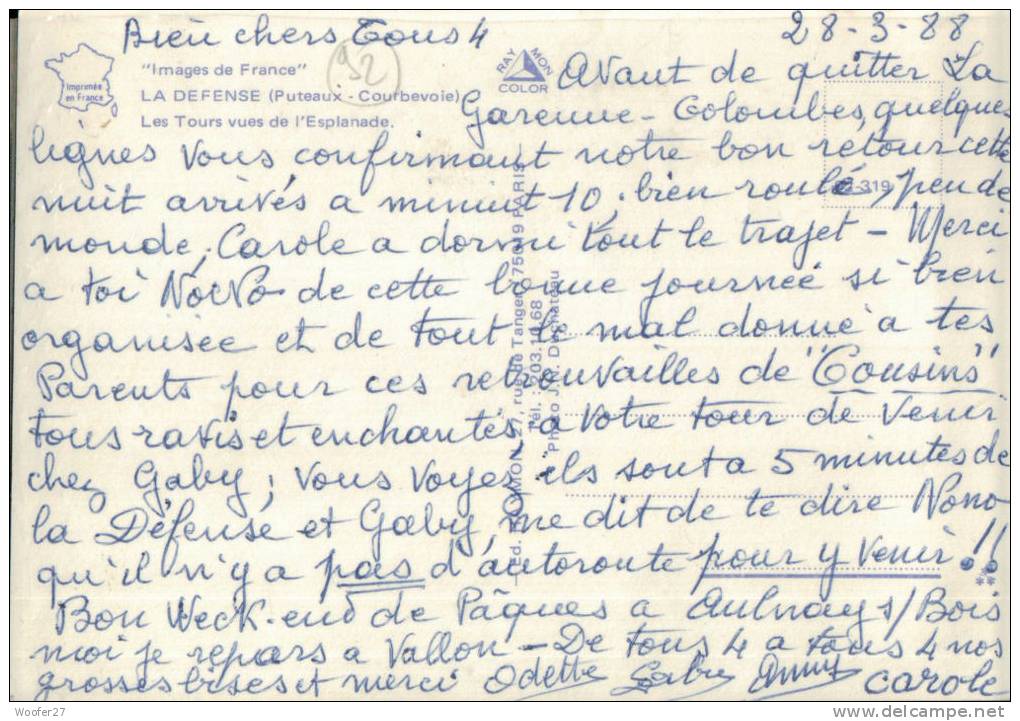 Bien chers Tous 4
28-3-88
92
Imprimée
en France
"Images de France"
LA DEFENSE (Puteaux - Courbevoie)
Les Tours vues de l'Esplanade.
RAY MON
COLOR
Avant de quitter La
Garenne-Colombes, quelques
lignes vous confirmant notre bon retour cette
nuit arrivés a minuit 10, bien roulé, peu de
-319
monde, Carole a dormi tout le trajet - Merci
a toi NoNo de cette bonne journée si bien
organisée et de tout le mal donné a tes
Parents pour ces retrouvailles de "Cousins"
tous ravis et enchantés, a votre tour de venir
chez Gaby; vous voyez, ils sont a 5 minutes de
la Défense et Gaby, me dit de te dire Nono
qu'il n'y a pas d'autoroute pour y venir !!
Bon Week-end de Pâques a Aulnay s/Bois
moi je repars a Vallon - De tous 4 a tous 4 nos
grosses bises et merci Odette Gaby Anny Carole
RAYMON 27, rue de Tanger 75019 PARIS
Woofer27
www.delcampe.net